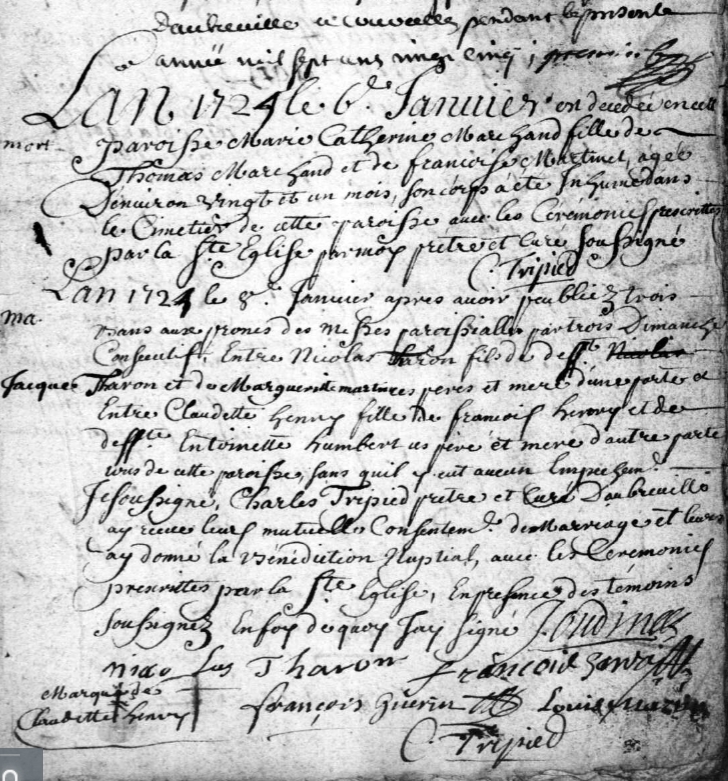 Daubreuille et Courcelle pendant la presente
année mil sept cens vingt cinq,
Lan 1724 le 6e. Januier est decedée en cette
mort paroisse Marie Catherine Marchand fille de
Thomas Marchand et de francoise Martinet, agée
Denuiron vingt et un mois, son corps a eté Inhumé dans
le Cimetier de cette paroisse auec les Cérémonies prescrittes
par la Ste Eglise par moy prêtre et Curé soussigné
C Tripied
Lan 1724 le 8e. Januier apres auoir publiez trois
Ma. bans aux prones des messes paroissialles par trois Dimanche
Consecutifs, Entre Nicolas Tharon fils de defft Nicolas
Jacques Tharon et de Marguerite martin ces peres et mere d'une parte et
Entre Claudette henry fille de francois henry et de
deffte Entoinette humbert ces pere et mere d'autre parte
tous de cette paroisse, sans quil y eut aucun Empechem.
Je soussigné, Charles Tripied prêtre et Curé Daubreuille
ay receu leurs mutuelles Consentem. de Marriage et leurs
ay donné la Bénédiction Nuptial, auec les Ceremonies
prescrittes par la Ste Eglise, En presence des témoins
soussignez En foy de quoy Jay signé J. oudinez
nico Las Tharon francois henry
Marque de
Claudette henry francois guerin Louis martin
C Tripied